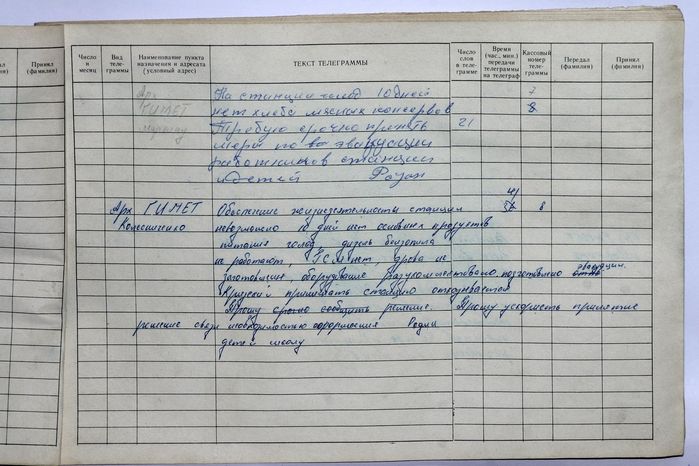 Принял (фамилия)
Число и месяц
Вид теле- граммы
Наименование пункта назначения и адресата (условный адрес)
ТЕКСТ ТЕЛЕГРАММЫ
Число слов в теле- грамме
Время (час., мин.) передачи телеграммы на телеграф
Кассовый номер теле- граммы
Передал (фамилия)
Принял (фамилия)
Арх На станции голод 10 дней 7
ГИМЕТ нет хлеба мясных консервов 8
Требую срочно принять 21
меры по эвакуации
работников станции
и детей
41
Арх ГИМЕТ Обеспечение жизнедеятельности станции 8
Колесниченко невозможно 10 дней нет основных продуктов
питания голод, дизель бензопила
не работают, ГСМ нет, дрова не
эвакуации.
заготовлены, оборудование разукомплектовано, подготовлено
принимать станцию отказывается
Прошу срочно сообщить решение. Прошу ускорить принятие
решение связи необходимостью оформления Родни
детей школу